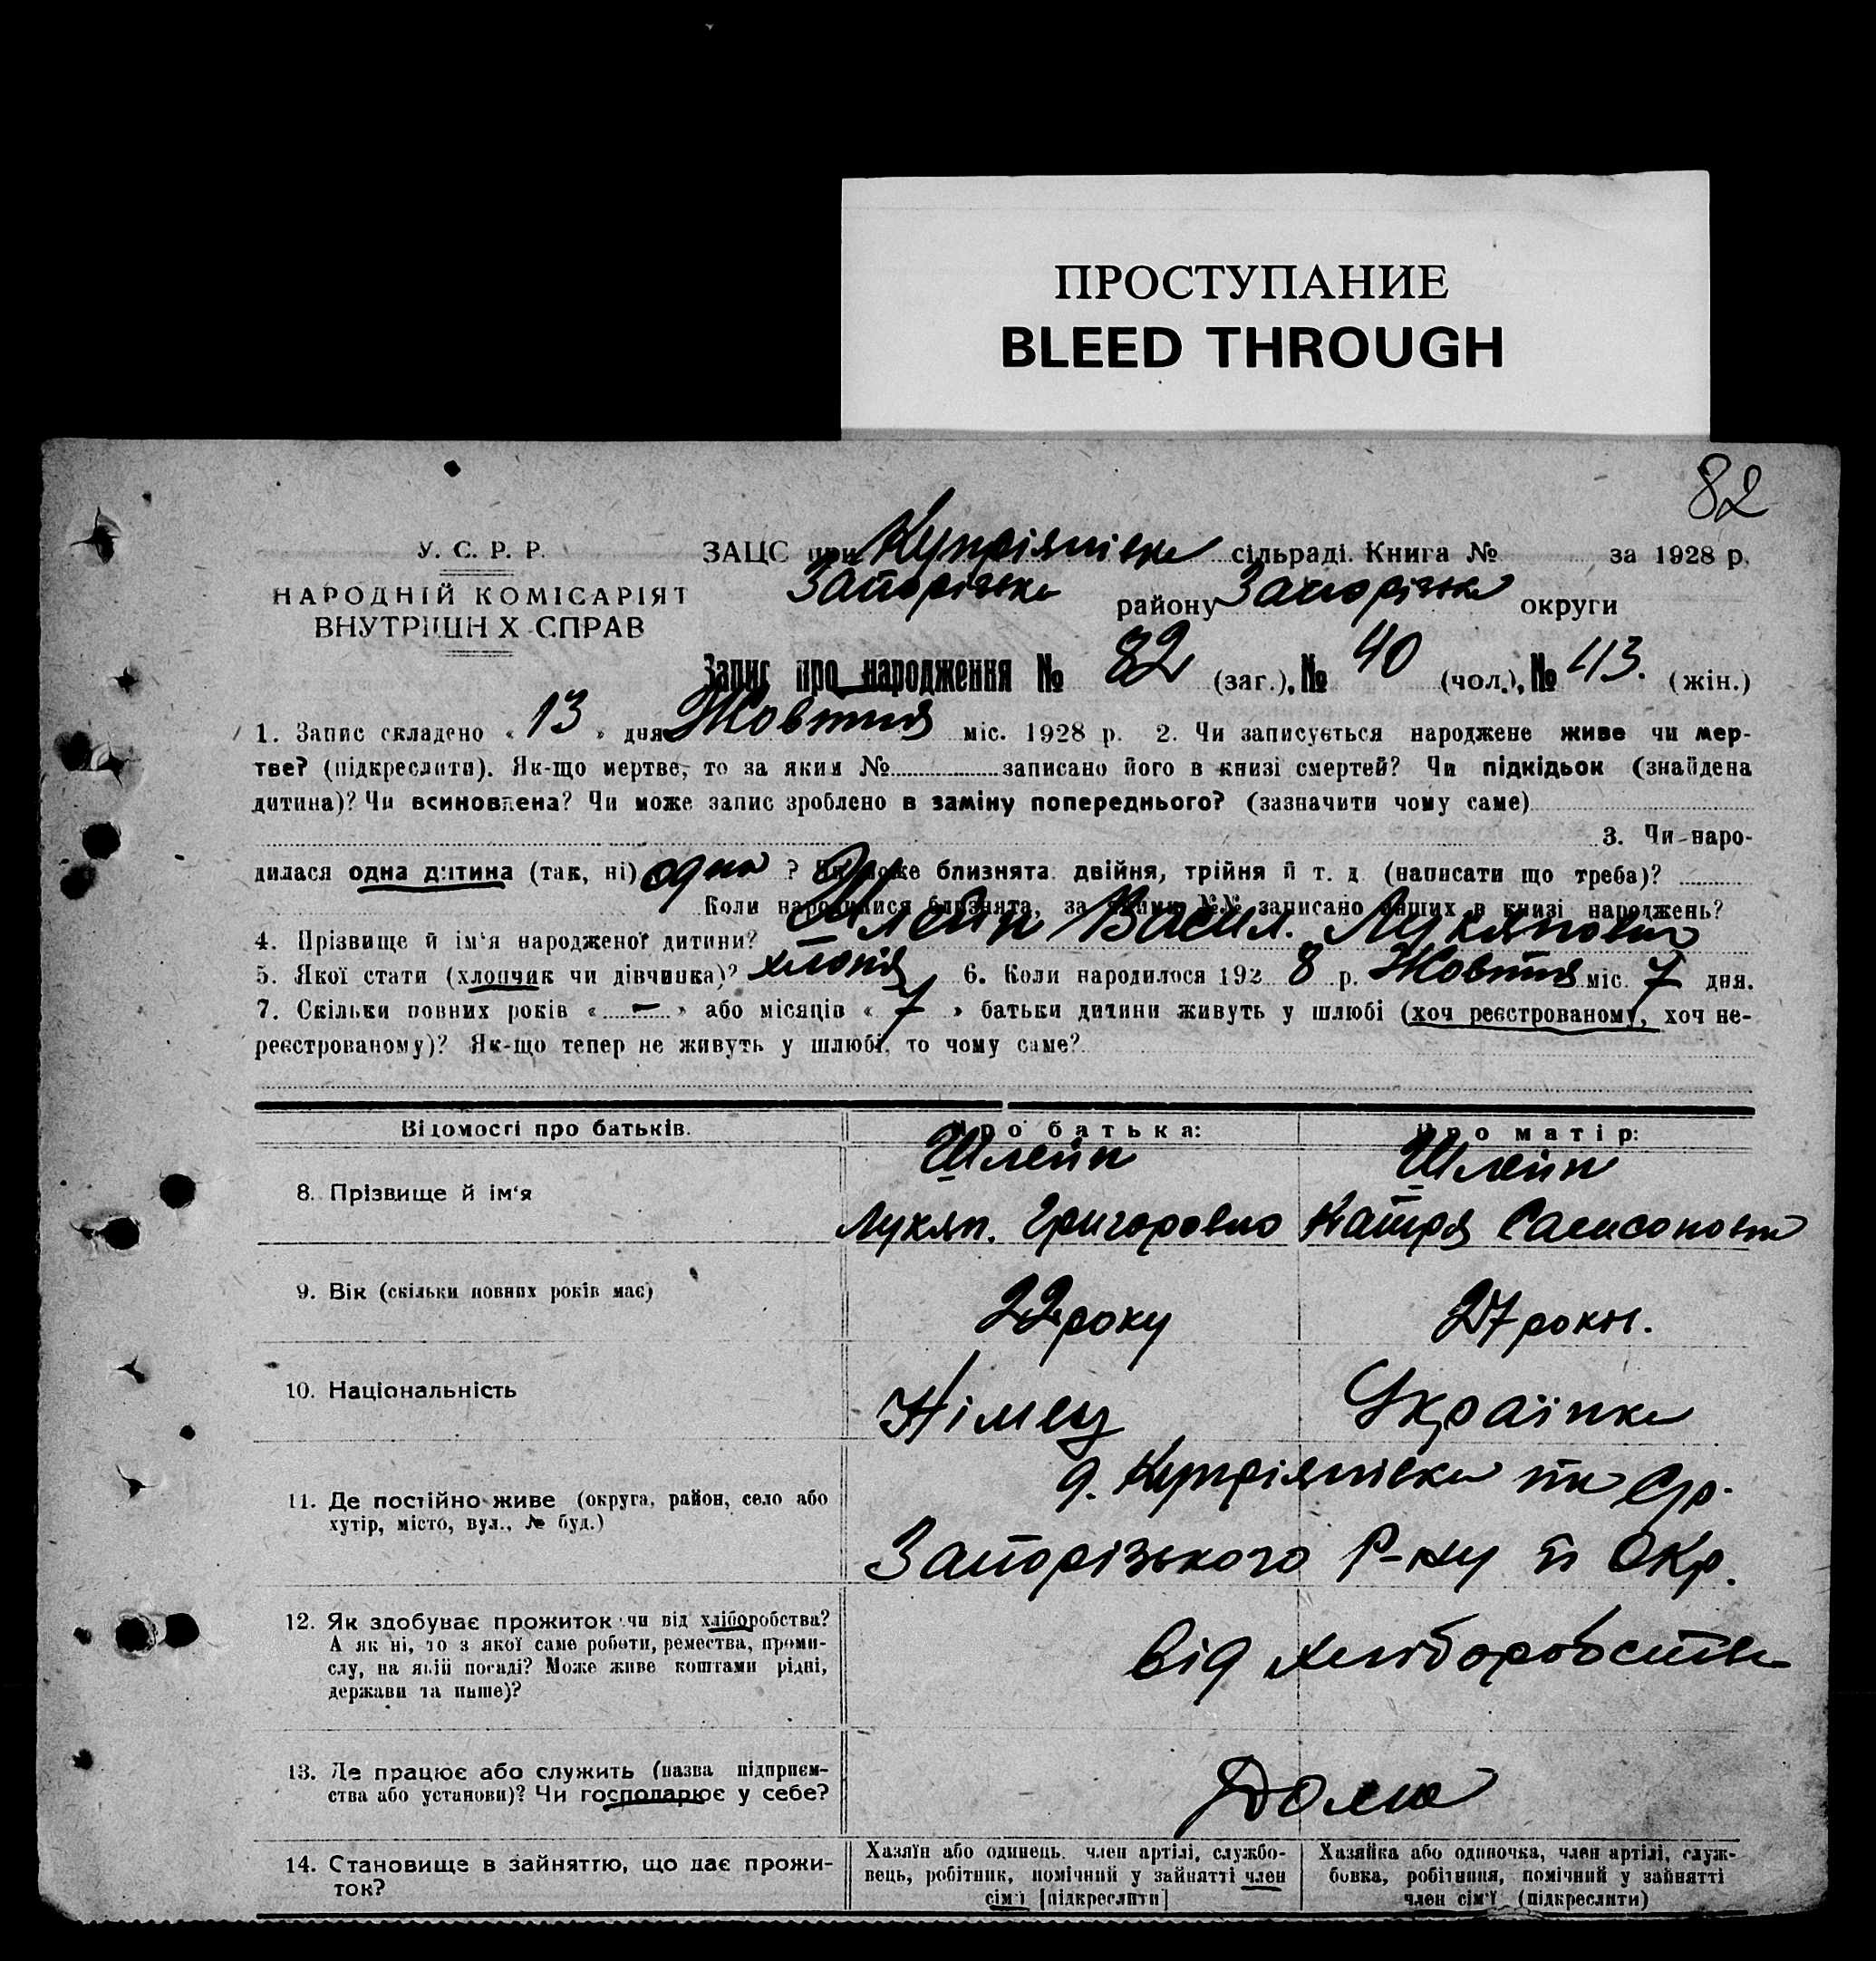 ПРОСТУПАНИЕ
BLEED THROUGH
82
У. С. Р. Р.
НАРОДНІЙ КОМІСАРІЯТ
ВНУТРІШН Х СПРАВ
ЗАЦС при Купріянівка сільраді. Книга № за 1928 р.
Запорізька району Запорізька округи
Запис про народження № 82 (заг.), № 40 (чол.), № 43. (жін.)
1. Запис складено « 13 » дня Жовтня міс. 1928 р. 2. Чи записується народжене живе чи мер-
тве? (підкреслити). Як-що мертве, то за яким № записано його в книзі смертей? Чи підкідьок (знайдена
дитина)? Чи всиновлена? Чи може запис зроблено в заміну попереднього? (зазначити чому саме)
3. Чи наро-
дилася одна дитина (так, ні) одна ? Чи може близнята: двійня, трійня й т. д. (написати що треба)?
Коли народилися близнята, за якими №№ записано инших в книзі народжень?
4. Прізвище й ім‘я народженої дитини? Шлейн Васил. Лукянович
5. Якої стати (хлопчик чи дівчинка)? 6. Коли народилося 192 8 р. Жовтня міс. 7 дня.
7. Скільки повних років « – » або місяців « 7 » батьки дитини живуть у шлюбі (хоч реєстрованому, хоч не-
реєстрованому)? Як-що тепер не живуть у шлюбі, то чому саме?
Відомості про батьків. Про батька: Про матір:
8. Прізвище й ім‘я Шлейн Шлейн
Лукян. Григорович Катря Самсоновна
9. Вік (скільки повних років має) 22 року 27 роки.
10. Національність Німец Українка
11. Де постійно живе (округа, район, село або
хутір, місто, вул., № буд.)
Купріянівка
Запорізького Р-ну й Окр.
12. Як здобуває прожиток: чи від хліборобства?
А як ні, то з якої саме роботи, ремества, проми-
слу, на якій посаді? Може живе коштами рідні,
держави та инше)?
від хліборобства
13. Де працює або служить (назва підприєм-
ства або установи)? Чи господарює у себе?
Дома
14. Становище в зайняттю, що дає прожи-
ток?
Хазяїн або одинець, член артілі, службо-
вець, робітник, помічний у зайнятті член
сім‘ї [підкреслити]
Хазяйка або одиночка, член артілі, служ-
бовка, робітниця, помічний у зайнятті
член сім‘ї (підкреслити)